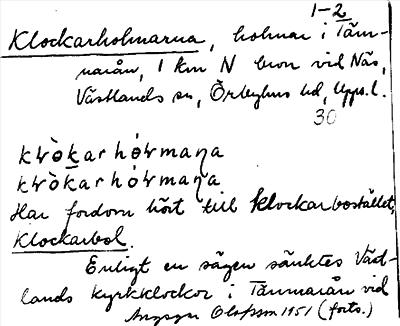 1-2
Klockarholmarna, holmar i Täm-
narån, 1 km N bron vid Näs,
Västlands sn, Örbyhus hd, Upps. l.
30
Har fordom hört till klockarbostället,
Klockarbol.
Enligt en sägen sänktes Väst-
lands kyrkklockor i Tämnarån vid
Olofsson 1951 (forts.)